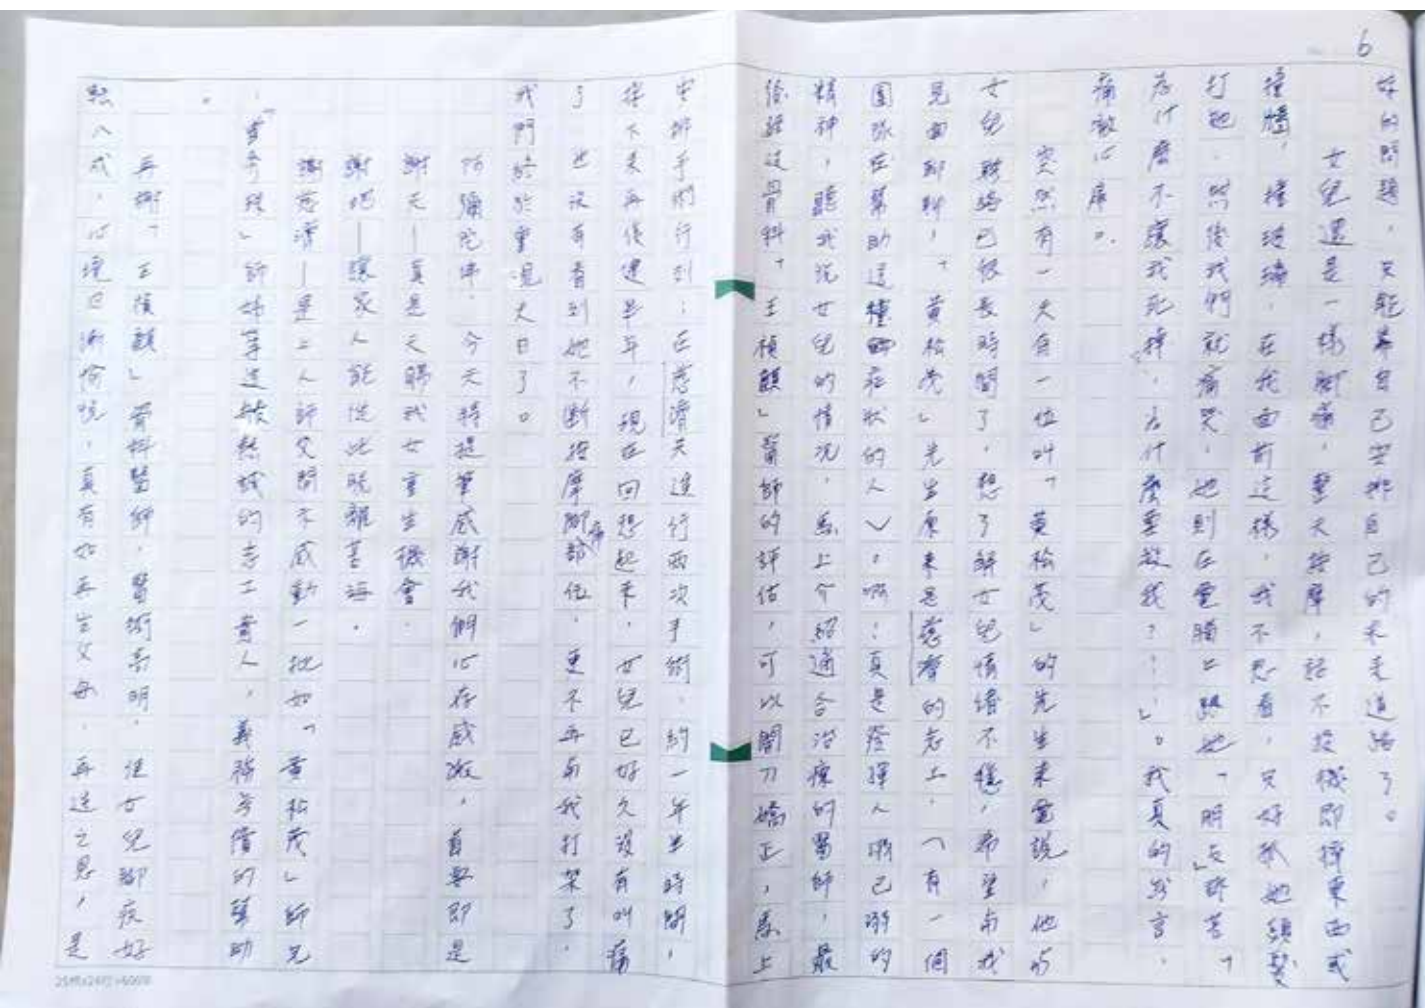 6
好的問題，只能靠自己安排自己的未來道路了。
女兒還是一樣腳痛，整天按摩，話不投機即摔東西或
撞牆，撞玻璃，在我面前這樣，我不忍看，只好抓她頭髮
打她，然後我們就痛哭，她則在電腦上跟她「朋友」訴苦「
為什麼不讓我死掉，為什麼要救我？！！」。我真的欲言，
痛徹心扉。
突然有一天自一位叫「黃松茂」的先生來電說，他與
女兒聯絡已很長時間了，想了解女兒情緒不穩，希望與我
見面聊聊，「黃松茂」先生原來是慈濟的志工，（有一個
團隊在幫助這種症狀的人）。啊！真是發揮人溺己溺的
精神，聽我說女兒的情況，馬上介紹適合治療的醫師，最
後經過骨科「王禎麒」醫師的評估，可以開刀矯正，馬上
安排手術行列；在慈濟天進行兩次手術，約一年半時間，
接下來再復建半年，現在回想起來，女兒已好久沒有叫痛
了，也沒有看到她不斷按摩腳痛部位，更不再與我打架了，
我們終於重見天日了。
阿彌陀佛，今天特提筆感謝我們心存感激，首要即是
謝天—真是天賜我女重生機會，
謝地—讓家人能從此脫離苦海，
謝慈濟—是上人師父間不感動一批如「黃松茂」師兄
，「曹秀殘」師姊等這般熱誠的志工貴人，義務無償的幫助
。
再謝「王禎麒」骨科醫師，醫術高明，使女兒腳疾好
轉八成，心境也漸愉悅，真有如再生父母，再造之恩，是
25行x24行=600字